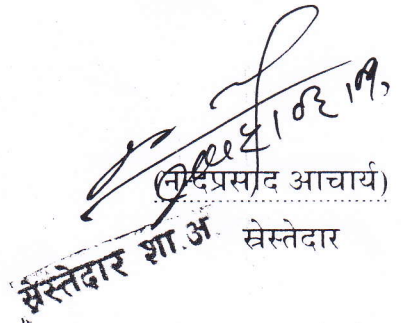 (नन्दप्रसाद आचार्य)
स्रेस्तेदार
स्रेस्तेदार शा.अ